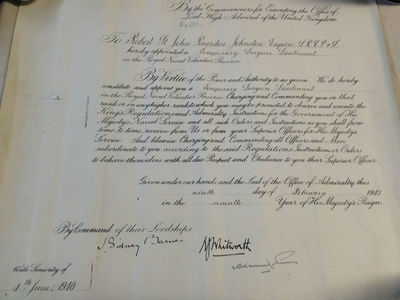 By the Commissioners for Executing the Office of
Lord High Admiral of the United Kingdom
To Robert St John Rearden Johnston Esquire, L.R.C.P. & S.
hereby appointed a Temporary Surgeon Lieutenant
in the Royal Naval Volunteer Reserve
By Virtue of the Power and Authority to us given We do hereby
constitute and appoint you a Temporary Surgeon Lieutenant
in the Royal Naval Volunteer Reserve Charging and Commanding you in that
rank or in any higher rank to which you may be promoted to observe and execute the
King's Regulations and Admiralty Instructions for the Government of His
Majesty's Naval Service and all such Orders and Instructions as you shall from
time to time receive from Us or from your Superior Officers for His Majesty's
Service And likewise Charging and Commanding all Officers and Men
subordinate to you according to the said Regulations Instructions or Orders
to behave themselves with all due Respect and Obedience to you their Superior Officer
Given under our hands and the Seal of the Office of Admiralty this
ninth day of February 1943
in the seventh Year of His Majesty's Reign
By Command of their Lordships
J. Sidney Barnes
Whitworth
With Seniority of
4th June, 1940